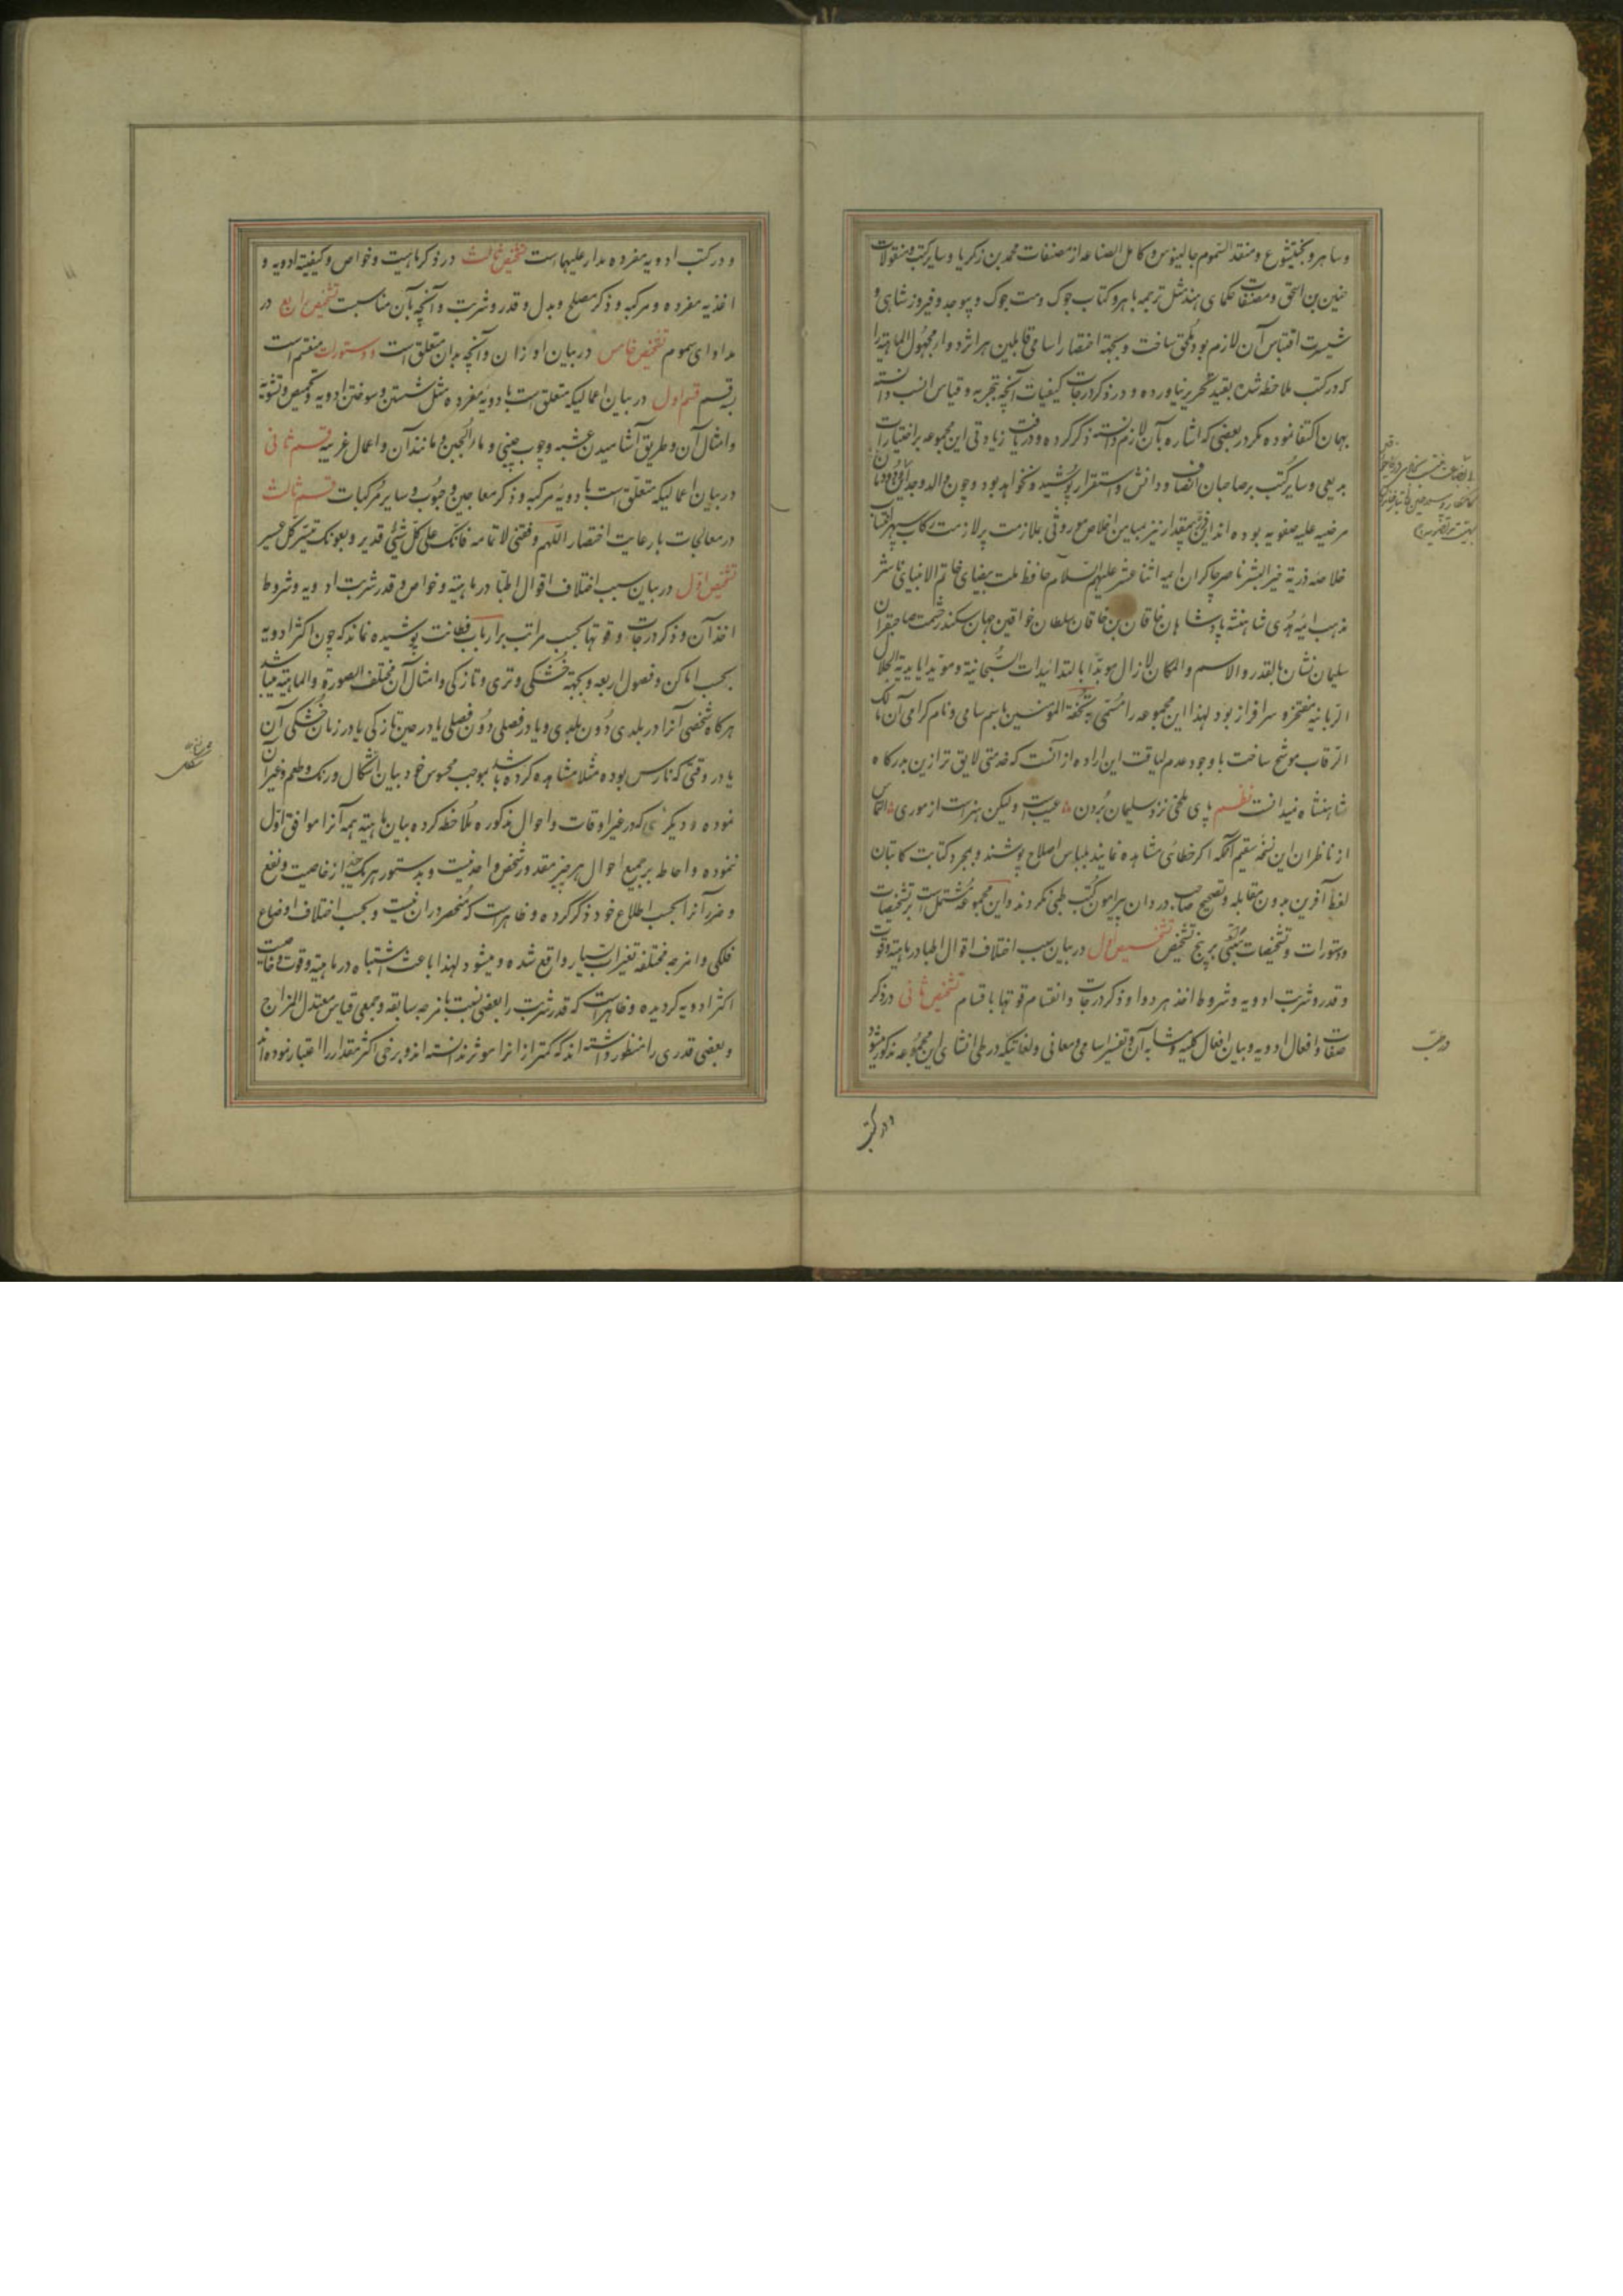 وساهر و بختیشوع و منقد السموم جالینوس و کامل الصناعه از مصنفات محمد بن زکریا و سایر کتب و منقولات
حنین بن اسحق و مصنفات حکمای هند مثل ترجمه باهر و کتاب جوک و مت جوک و فیروز شاهی و
اقتباس آن لازم بود ملحق ساخت و بجهة اختصار اسامی قایلین هر اثر و ادویه مجهول الماهیة را
که در کتب ملاحظه شده بقید تحریر نیاورده و در ذکر درجات کیفیات آنچه تجربه و قیاس انسب دانسته
بهمان اکتفا نموده مکر در بعضی که اشاره بآن لازم دانسته ذکر کرده و دریافت زیادتی این مجموعه بر اختیارات
بدیعی و سایر کتب بر صاحبان انصاف و دانش و استقرار پوشیده نخواهد بود و چون والد و جد
مرضیه علیه صفویه بوده اند این بیمقدار نیز بمیامن اخلاص موروثی بملازمت رکاب سپهر انتساب
خلاصه ذریة خیر البشر ناصر چاکران ایمه اثنا عشر علیهم السلام حافظ ملت بیضای خاتم الانبیای ناشر
مذهب ائمه هدی شاهنشه پادشاهان خاقان بن خاقان سلطان خواقین جهان سکندر حشمت صاحبقران
سلیمان نشان بالقدر والاسم والمکان لازال مویدا بالتدائیدات السبحانیة و مویدا بایدیة الجلال
الربانیة مفتخر و سرافراز بود لهذا این مجموعه را مسمی به تحفة المومنین باسم سامی و نام کرامی آن مالک
الرقاب موشح ساخت با وجود عدم لیاقت این اراده از آنست که خدمتی لایق تر ازین بدرکاه
شاهنشاه نمیدانست نظم پای ملخی نزد سلیمان بردن عیبست ولیکن هنرست از موری التماس
از ناظران این نسخه سقیم آنکه اکر خطائی مشاهده نمایند بلباس اصلاح پوشند و بمجرد کتابت کاتبان
لغط آفرین بدون مقابله و تصحیح صاحب دردان پیرامون کتب طبی نکردند و این مجموعه مشتمل است بر تشخیصات
و دستورات و تشخیصات مبتنی بر پنج تشخیص تشخیص اول در بیان سبب اختلاف اقوال اطبا در ماهیة و قوت
و قدر و شربت ادویه و شروط اخذ هر دوا و ذکر درجات و انقسام قوتها باقسام تشخیص ثانی در ذکر
صفات و افعال ادویه و بیان افعال کلیه و مشابه آن و تفسیر اسامی و معانی و لغاتیکه در طی انشای این مجموعه مذکور میشود
و در کتب
و در کتب ادویه مفرده مدار علیهاست تشخیص ثالث در ذکر ماهیت و خواص و کیفیة ادویه و
اغذیه مفرده و مرکبه و ذکر مصلح و بدل و قدر و شربت و آنچه بآن مناسبت تشخیص رابع در
مداوای سموم تشخیص خامس در بیان اوزان و آنچه بدان متعلق است و دستورات منقسم است
بسه قسم قسم اول در بیان اعمالیکه متعلق است بادویهٔ مفرده مثل شستن و سوختن ادویه و تحمیص و تشویة
و امثال آن و طریق آشامیدن عشبه و چوب چینی و ماء الجبن و مانند آن و اعمال غریبه قسم ثانی
در بیان اعمالیکه متعلق است بادویهٔ مرکبه و ذکر معاجین و حبوب و سایر مرکبات قسم ثالث
در معالجات بارعایت اختصار اللهم وفقنی لاتمامه فانک علی کل شئ قدیر و بعونک تیسر کل عسیر
تشخیص اول در بیان سبب اختلاف اقوال اطبا در ماهیة و خواص و قدر شربت ادویه و شروط
اخذ آن و ذکر درجات و قوتها بحسب مراتب بر ارباب فطانت پوشیده نماند که چون اکثر ادویه
بحسب اماکن و فصول اربعه و بجهة خشکی و تری و تازکی و امثال آن مختلف الصورة و الماهیة میباشد
هرکاه شخصی آنرا در بلدی دون بلدی و یا در فصلی دون فصلی یا در حین تازکی یا در زمان خشکی آن
یا در وقتی که نارس بوده مثلا مشاهده کرده باشد بموجب محسوس خود بیان اشکال و رنک و طعم و غیر آن
نموده و دیکری که در غیر اوقات و احوال مذکوره ملاحظه کرده بیان ماهیة همه آنرا موافق اول
ننموده و احاطه بر جمیع احوال هر چیز مقدور شخص واحد نیست و بدستور هر یک چیزی از خاصیت و نفع
و ضرر آنرا بحسب اطلاع خود ذکر کرده و ظاهرست که منحصر در ان نیست و بحسب اختلاف اوضاع
فلکی و امزجه مختلفه تغیرات بسیار واقع شده و میشود لهذا باعث اشتباه در ماهیة و قوت و خاصیت
اکثر ادویه کردیده و ظاهراست که قدر شربت را بعضی نسبت بامزجه سابقه و جمعی قیاس معتدل المزاج
و بعضی قدری را منظور داشته اند که کمتر از انرا موثر ندانسته اند و برخی اکثر مقدار را اعتبار نموده اند